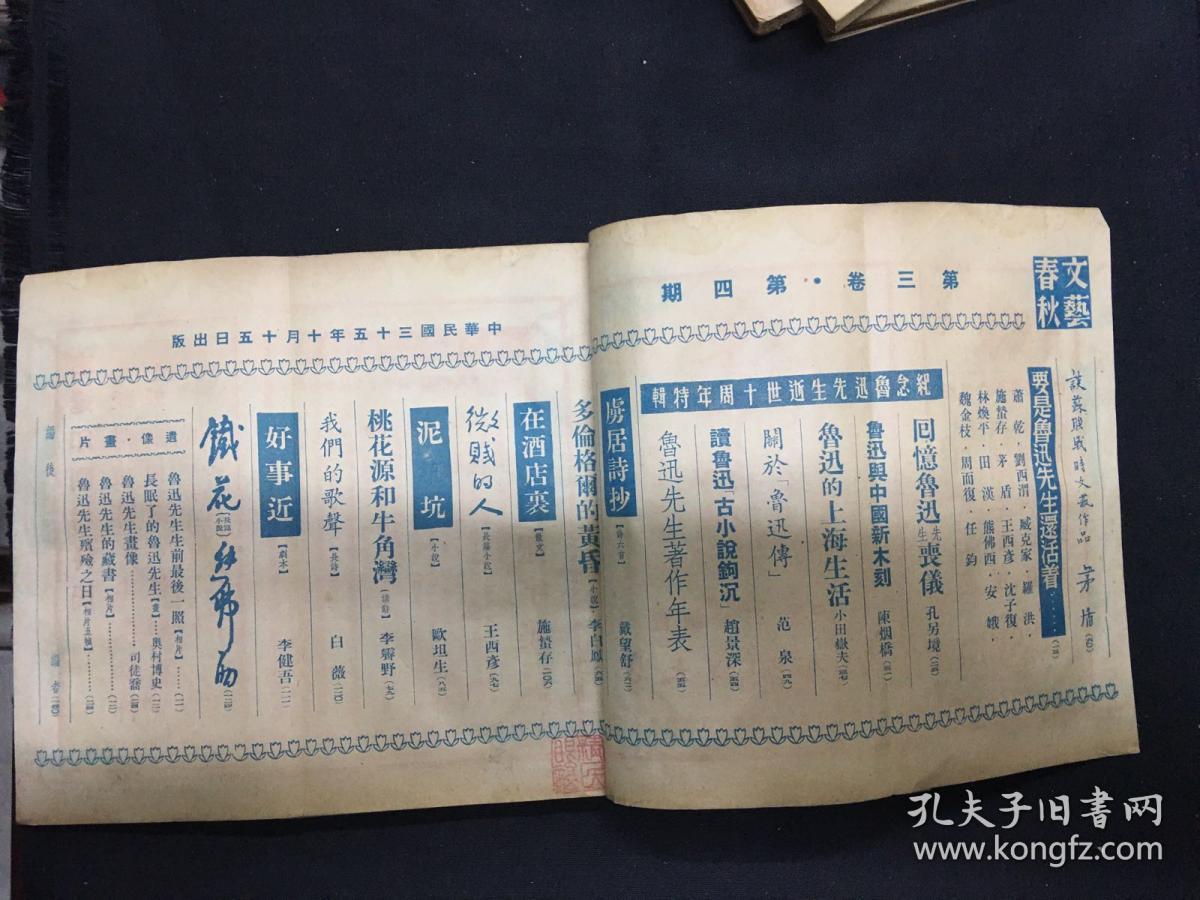 文藝春秋
第三卷・第四期
談蘇聯戰時文藝作品 茅盾
要是魯迅先生還活着……
蕭乾・劉西渭・臧克家・羅洪・
施蟄存・茅盾・王西彥・沈子復・
林煥平・田漢・熊佛西・安娥
魏金枝・周而復・任鈞
紀念魯迅先生逝世十周年特輯
回憶魯迅先生喪儀 孔另境
魯迅與中國新木刻 陳烟橋
魯迅的上海生活 小田嶽夫
關於「魯迅傳」 范泉
讀魯迅「古小說鉤沉」 趙景深
魯迅先生著作年表
虜居詩抄【詩六首】 戴望舒
多倫格爾的黃昏【小說】 李白鳳
中華民國三十五年十月十五日出版
在酒店裏【散文】 施蟄存
微賤的人【長篇小說】 王西彥
泥坑【小說】 歐坦生
桃花源和牛角灣 李霽野
我們的歌聲【長詩】 白薇
好事近【劇本】 李健吾
鐵花【長篇小說】
遺像・畫片
魯迅先生生前最後一照【相片】
長眠了的魯迅先生【畫】 奧村博史
魯迅先生畫像 司徒喬
魯迅先生的藏書【相片】
魯迅先生殯殮之日【相片五幀】
編後 編者
孔夫子旧书网
www.kongfz.com